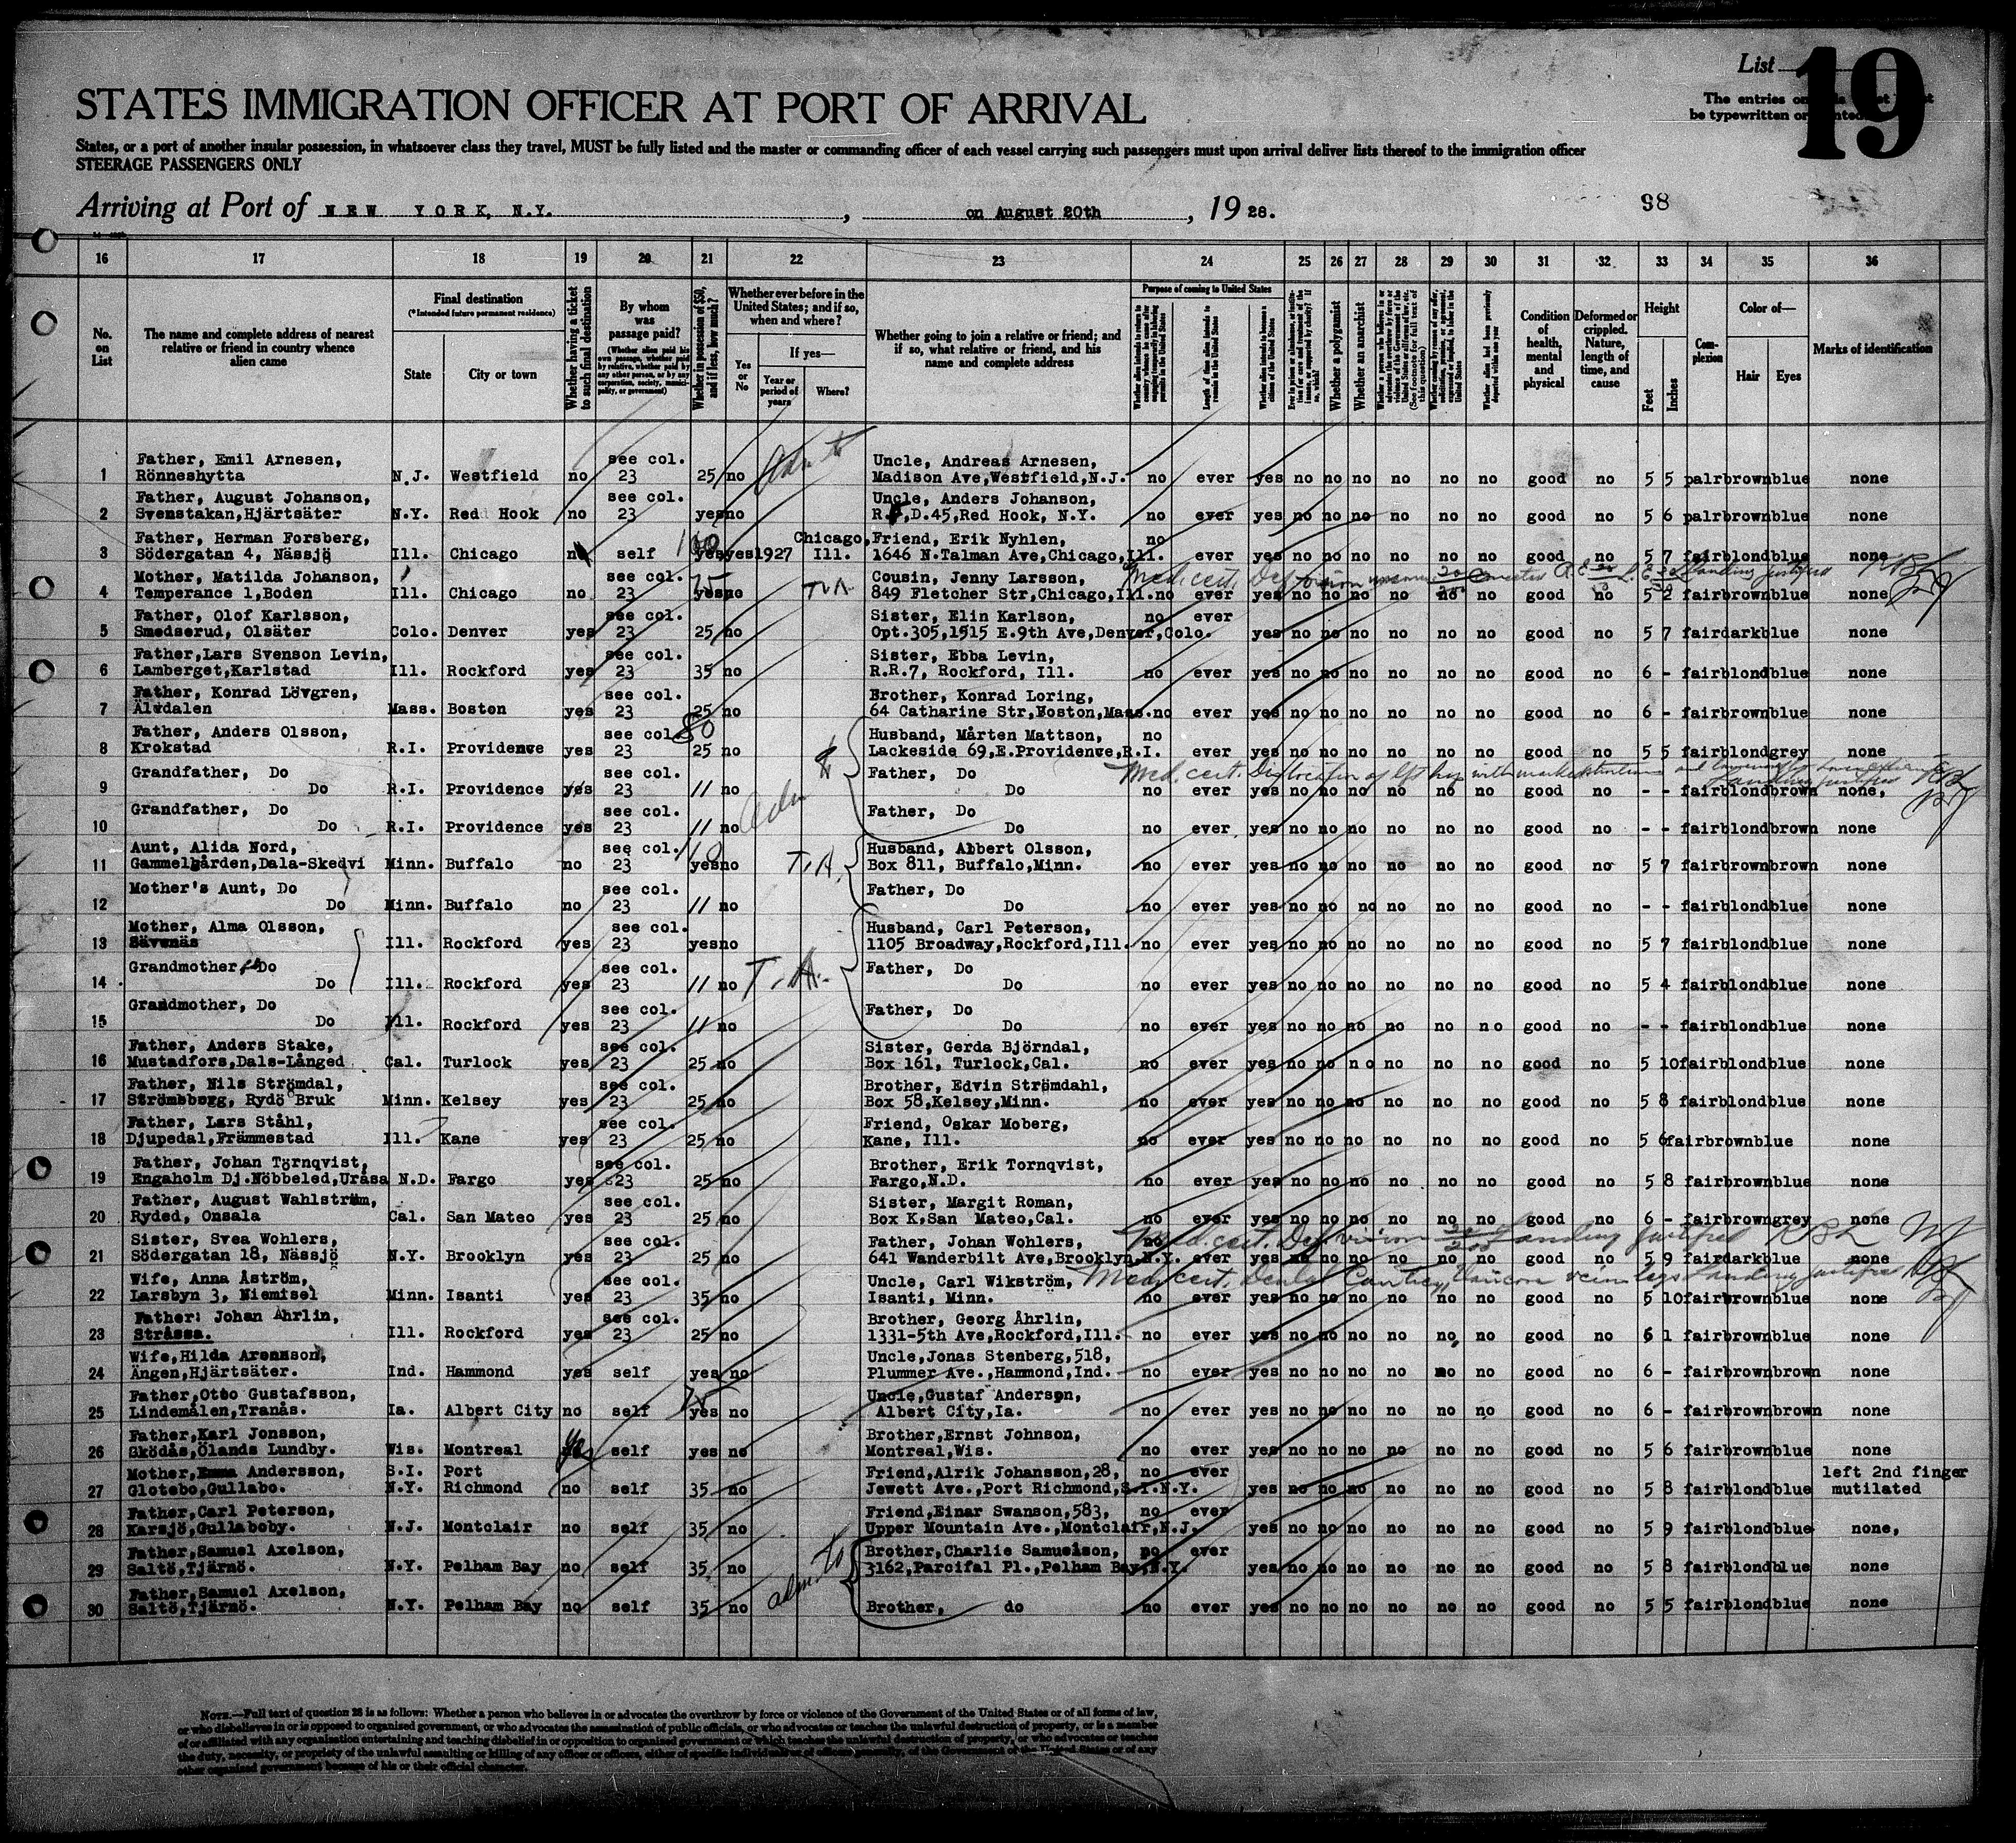 List 19
STATES IMMIGRATION OFFICER AT PORT OF ARRIVAL
The entries on
be typewritten or
States, or a port of another insular possession, in whatsoever class they travel, MUST be fully listed and the master or commanding officer of each vessel carrying such passengers must upon arrival deliver lists thereof to the immigration officer
STEERAGE PASSENGERS ONLY
Arriving at Port of NEW YORK, N.Y. , on August 20th , 1928.
98
16 17 18 19 20 21 22 23 24 25 26 27 28 29 30 31 32 33 34 35 36
No. on List
The name and complete address of nearest relative or friend in country whence alien came
Final destination
(*Intended future permanent residence)
State
City or town
Whether having a ticket to such final destination
By whom was passage paid?
(Whether alien paid his own passage, whether paid by relative, whether paid by any other person, or by any corporation, society, municipality, or government)
Whether in possession of $50, and if less, how much?
Whether ever before in the United States; and if so, when and where?
Yes or No
If yes—
Year or period of years
Where?
Whether going to join a relative or friend; and if so, what relative or friend, and his name and complete address
Purpose of coming to United States
Length of time alien intends to remain in the United States
Whether alien intends to become a citizen of the United States
Whether a polygamist
Whether an anarchist
Condition of health, mental and physical
Deformed or crippled. Nature, length of time, and cause
Height
Feet
Inches
Complexion
Color of—
Hair
Eyes
Marks of identification
Father, Emil Arnesen, see col. Uncle, Andreas Arnesen,
1 Rönneshytta N.J. Westfield no 23 25 no Madison Ave,Westfield,N.J. no ever yes no no no no no no good no 5 5 palr brown blue none
Father, August Johanson, see col. Uncle, Anders Johanson,
2 Svenstakan,Hjärtsäter N.Y. Red Hook no 23 yes no R.F,D.45,Red Hook, N.Y. no ever yes no no no no no no good no 5 6 palr brown blue none
Father, Herman Forsberg, Chicago, Friend, Erik Nyhlen, no
3 Södergatan 4, Nässjö Ill. Chicago no self 100 yes yes 1927 Ill. 1646 N.Talman Ave,Chicago,Ill. ever yes no no no no no no good no 5 7 fair blond blue none
Mother, Matilda Johanson, see col. 75 Cousin, Jenny Larsson, Med. cert. Def. vision Landing justified
4 Temperance 1,Boden Ill. Chicago no 23 yes no T.A. 849 Fletcher Str,Chicago,Ill. no ever yes no no no no no no good no 5 2 fair brown blue none
Father, Olof Karlsson, see col. Sister, Elin Karlson, no ever
5 Smedserud, Olsäter Colo. Denver yes 23 25 no Opt.305,1515 E.9th Ave,Denver,Colo. yes no no no no no no good no 5 7 fair dark blue none
Father,Lars Svenson Levin, see col. Sister, Ebba Levin,
6 Lamberget,Karlstad Ill. Rockford yes 23 35 no R.R.7, Rockford, Ill. no ever yes no no no no no no good no 6 - fair blond blue none
Father, Konrad Lövgren, see col. Brother, Konrad Loring,
7 Älvdalen Mass. Boston yes 23 25 no 64 Catharine Str,Boston,Mass. no ever yes no no no no no no good no 6 - fair brown blue none
Father, Anders Olsson, see col. 80 Husband, Mårten Mattson, no
8 Krokstad R.I. Providence yes 23 25 no Lackeside 69,E.Providence,R.I. ever yes no no no no no no good no 5 5 fair blond grey none
Grandfather, Do see col. Father, Do Med. cert. Dislocation of left hip with marked Landing justified
9 Do R.I. Providence yes 23 // no Do no ever yes no no no no no no good no - - fair blond brown none,
Grandfather, Do see col. Father, Do
10 Do R.I. Providence yes 23 // no Do no ever yes no no no no no no good no - - fair blond brown none
Aunt, Alida Nord, see col. 110 Husband, Albert Olsson,
11 Gammelgården,Dala-Skedvi Minn. Buffalo no 23 yes no T.A. Box 811, Buffalo,Minn. no ever yes no no no no no no good no 5 7 fair brown brown none
Mother's Aunt, Do see col. Father, Do
12 Do Minn. Buffalo no 23 // no Do no ever yes no no no no no no good no - - fair blond blue none
Mother, Alma Olsson, see col. Husband, Carl Peterson,
13 Sävenäs Ill. Rockford yes 23 yes no 1105 Broadway,Rockford,Ill. no ever yes no no no no no no good no 5 7 fair blond blue none
Grandmother, Do see col. Father, Do
14 Do Ill. Rockford yes 23 // no T.A. Do no ever yes no no no no no no good no 5 4 fair blond blue none
Grandmother, Do see col. Father, Do
15 Do Ill. Rockford yes 23 // no Do no ever yes no no no no no no good no - - fair blond blue none
Father, Anders Stake, see col. Sister, Gerda Björndal,
16 Mustadfors,Dals-Långed Cal. Turlock yes 23 25 no Box 161, Turlock,Cal. no ever yes no no no no no no good no 5 10 fair blond blue none
Father, Nils Strömdal, see col. Brother, Edvin Strömdahl,
17 Strömsborg, Rydö Bruk Minn. Kelsey yes 23 25 no Box 58,Kelsey,Minn. no ever yes no no no no no no good no 5 8 fair blond blue none
Father, Lars Ståhl, see col. Friend, Oskar Moberg,
18 Djupedal,Främmestad Ill. Kane yes 23 25 no Kane, Ill. no ever yes no no no no no no good no 5 6 fair brown blue none
Father, Johan Törnqvist, see col. Brother, Erik Tornqvist,
19 Engaholm Dj.Nöbbeled,Uråsa N.D. Fargo yes s23 25 no Fargo,N.D. no ever yes no no no no no no good no 5 8 fair brown blue none
Father, August Wahlström, see col. Sister, Margit Roman,
20 Ryded, Onsala Cal. San Mateo yes 23 25 no Box K,San Mateo,Cal. no ever yes no no no no no no good no 6 - fair brown grey none
Sister, Svea Wohlers, see col. Father, Johan Wohlers, no Med. cert. Def vision 20/200 Landing justified
21 Södergatan 18, Nässjö N.Y. Brooklyn yes 23 25 no 641 Wanderbilt Ave,Brooklyn,N.Y. ever yes no no no no no no good no 5 9 fair dark blue none
Wife, Anna Åström, see col. Uncle, Carl Wikström, Med. cert. Dental Landing justified
22 Larsbyn 3, Niemisel Minn. Isanti yes 23 35 no Isanti, Minn. no ever yes no no no no no no good no 5 10 fair brown blue none
Father: Johan Åhrlin, see col. Brother, Georg Åhrlin,
23 Stråssa. Ill. Rockford yes 23 25 no 1331-5th Ave,Rockford,Ill. no ever yes no no no no no no good no 6 1 fair brown blue none
Wife,Hilda Aronsson, Uncle,Jonas Stenberg,518,
24 Ängen,Hjärtsäter. Ind. Hammond yes self yes no Plummer Ave.,Hammond,Ind. no ever yes no no no no no no good no 6 - fair brown brown none
Father,Otto Gustafsson, 75 Uncle,Gustaf Anderson,
25 Lindemålen,Tranås. Ia. Albert City no self yes no Albert City,Ia. no ever yes no no no no no no good no 6 - fair brown brown none
Father,Karl Jonsson, Brother,Ernst Johnson,
26 Sködås,Ölands Lundby. Wis. Montreal yes self yes no Montreal,Wis. no ever yes no no no no no no good no 5 6 fair brown blue none
Mother,Emma Andersson, S.I. Port Friend,Alrik Johansson,28, no ever left 2nd finger
27 Glotebo,Gullabo. N.Y. Richmond no self 35 no Jewett Ave.,Port Richmond,S.I.N.Y. yes no no no no no no good no 5 8 fair blond blue mutilated
Father,Carl Peterson, Friend,Einar Swanson,583, no ever
28 Karsjö,Gullaboby. N.J. Montclair no self 35 no Upper Mountain Ave.,Montclair,N.J. yes no no no no no no good no 5 9 fair blond blue none,
Father,Samuel Axelson, Brother,Charlie Samuelson, no ever
29 Saltö,Tjärnö. N.Y. Pelham Bay no self 35 no 3162,Parcifal Pl.,Pelham Bay,N.Y. yes no no no no no no good no 5 8 fair blond blue none
Father,Samuel Axelson,
30 Saltö,Tjärnö. N.Y. Pelham Bay no self 35 no Brother, do no ever yes no no no no no no good no 5 5 fair blond blue none
NOTE.—Full text of question 28 is as follows: Whether a person who believes in or advocates the overthrow by force or violence of the Government of the United States or of all forms of law,
or who disbelieves in or is opposed to organized government, or who advocates the assassination of public officials, or who advocates or teaches the unlawful destruction of property, or is a member
of or affiliated with any organization entertaining and teaching disbelief in or opposition to organized government or which teaches the unlawful destruction of property, or who advocates or teaches
the duty, necessity, or propriety of the unlawful assaulting or killing of any officer or officers, either of specific individuals or of officers generally, of the Government of the United States or of any
other organized government because of his or their official character.